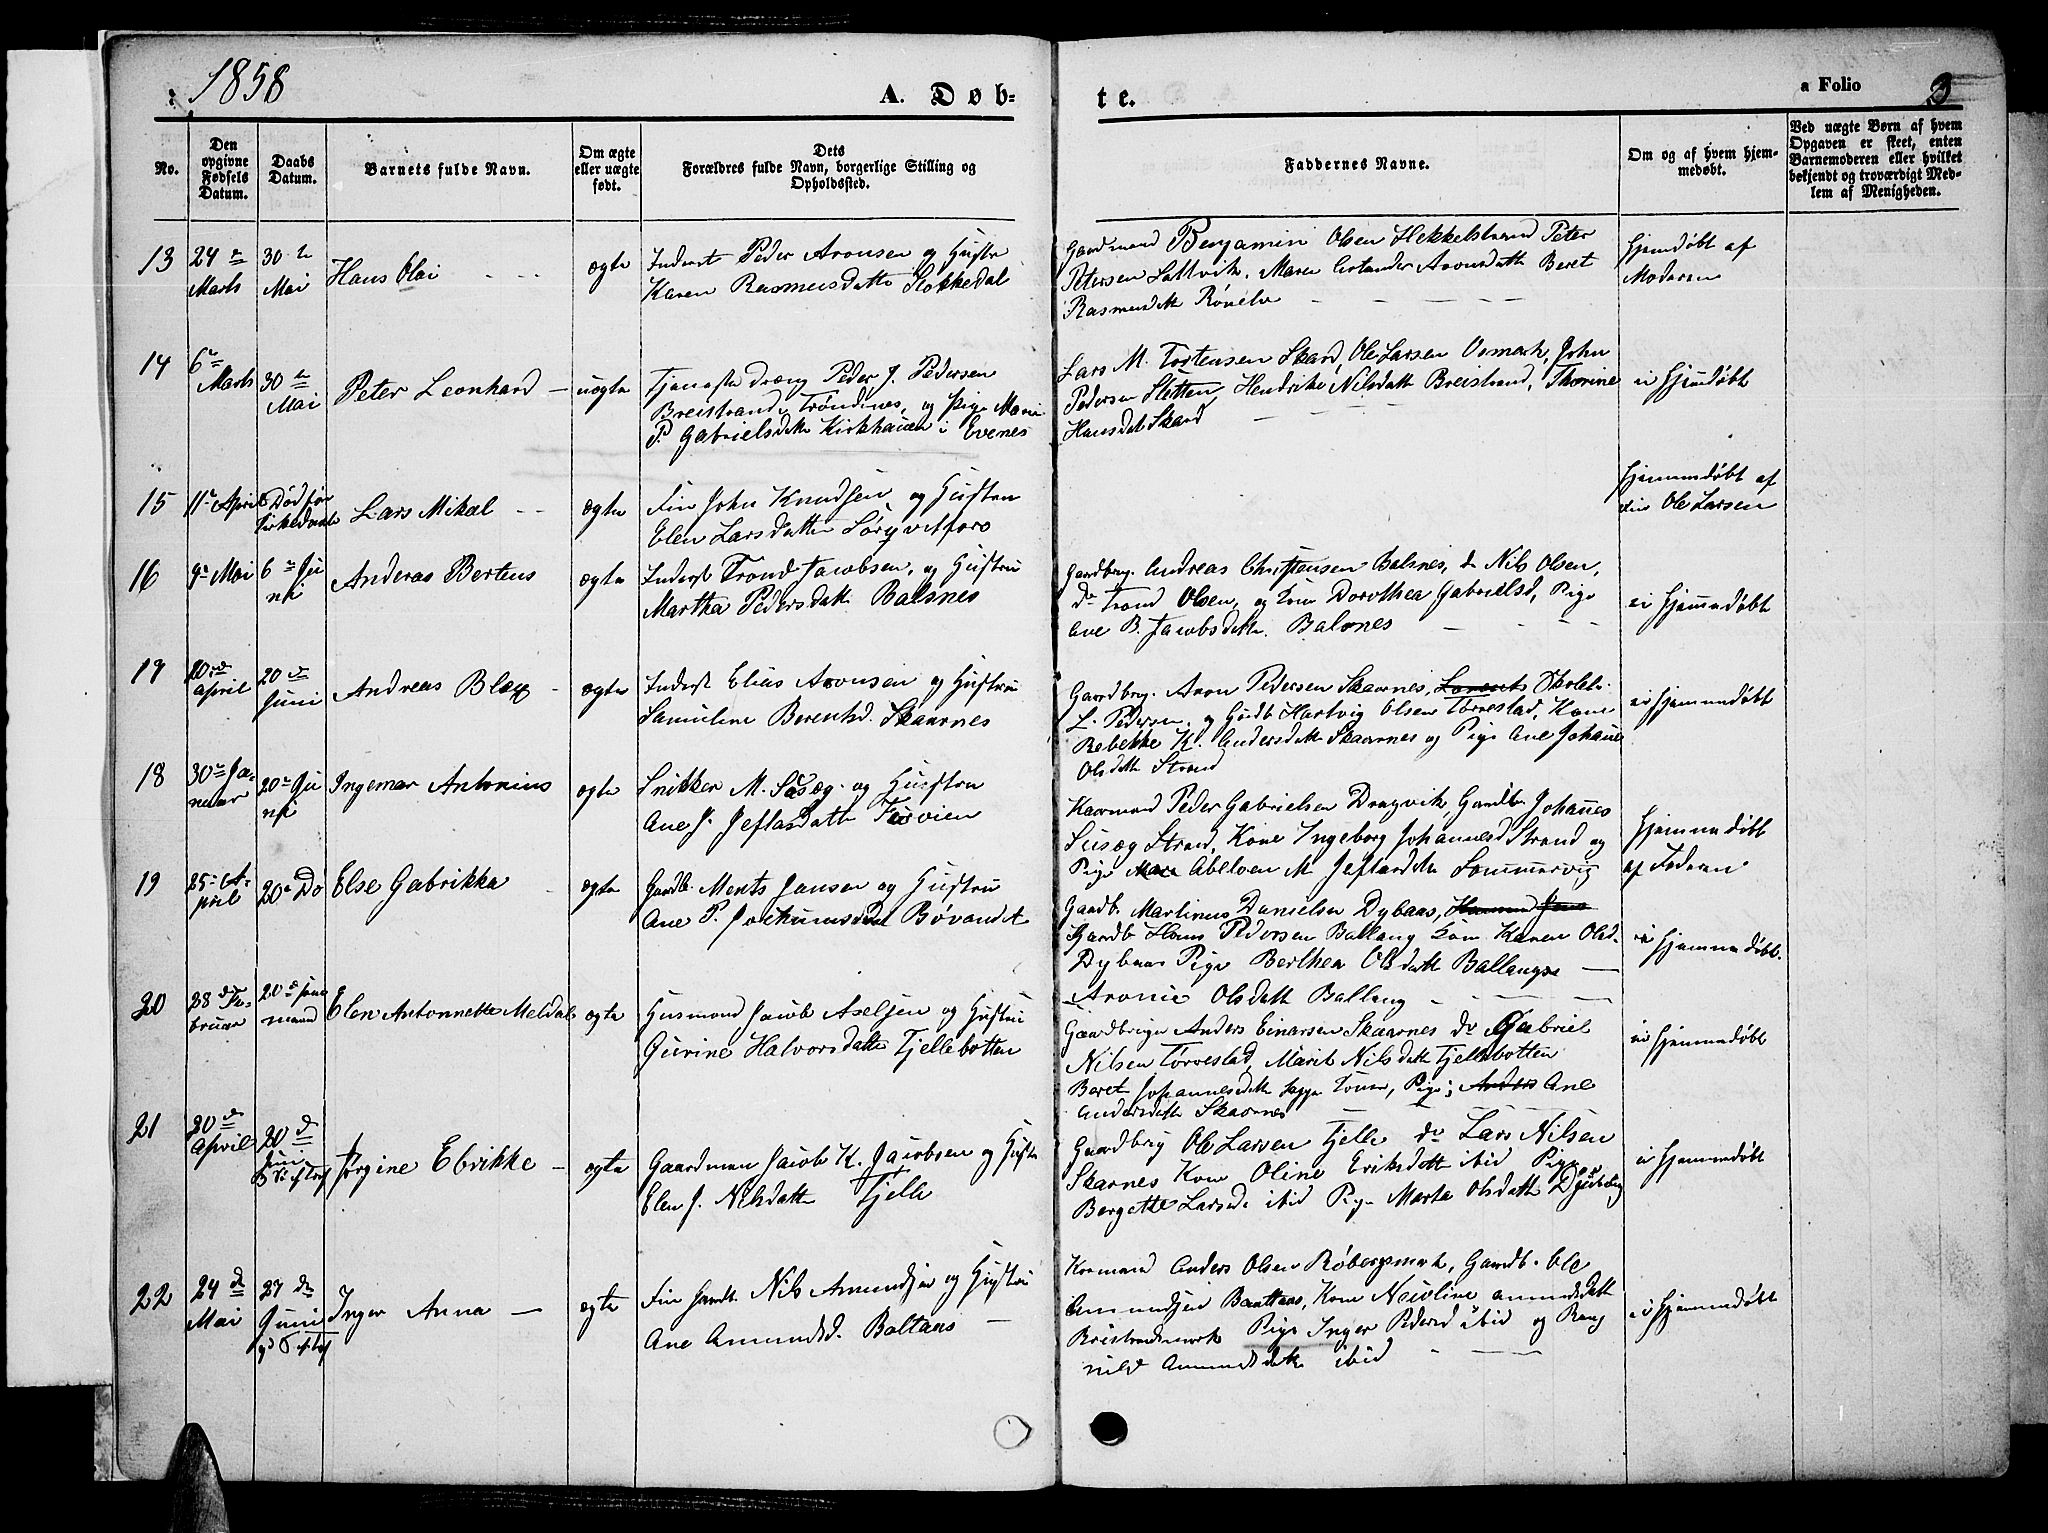 1858
A. Døb=
te.
a Folio
3
No.
Den opgivne Fødsels Datum.
Daabs Datum.
Barnets fulde Navn.
Om ægte eller uægte født.
Dets Forældres fulde Navn, borgerlige Stilling og Opholdssted.
Faddernes Navne.
Om og af hvem hjemmedøbt.
Ved uægte Børn af hvem Opgaven er skeet, enten Barnemoderen eller hvilket bekjendt og troværdigt Medlem af Menigheden.
13
24 Marts
30 Mai
Hans Olai
ægte
Inderst Peder Aronsen og Hustru
Karen Rasmusdatter
Gaardmand Benjamin Olsen Hekkelstrand Peter
Petersen Sattvik, Maren Aronsdatt Beret
Rasmusdtt
hjemdøbt af
Moderen
14
6 Marts
30 Mai
Peter Leonhard
uægte
Tjeneste dreng Peder J. Pedersen
Breistrand, Trondenes, og Pige
P. Gabrielsdtt i Evenes
Lars M. Tostensen Skard, Ole Larsen Osmark, John
Pedersen Sletten, Hendrikke Nilsdatt Breistrand, Thorine
Hansdtt Skard
ei hjemdøbt
15
11 April
Død før
Lars Mikal
ægte
Fin John Knudsen og Hustru
Elen Larsdatter
hjemmedøbt af
Ole Larsen
16
9 Mai
6 Juni
Anderas Berteus
ægte
Inderst Trond Jacobsen, og Hustru
Martha Pedersdatt Balsnes
Gaardbrug. Andreas Christensen Balsnes, do Nils Olsen,
do Trond Olsen, og Kone Dorothea Gabrielsd, Pige
Ane B. Jacobsdatt. Balsnes
ei hjemmedøbt
17
20 April
20 Juni
Andreas Blæg
ægte
Inderst Elias Aronsen og Hustru
Samuline Berentsd. Skaarnes
Gaardbrug. Aron Pedersen Skaarnes, Lorents
L. Pedersen, og Gaardb Hartvig Olsen Tørrestad, Kone
Rebekke K. Andersdatt Skaarnes og Pige Ane Johane
Olsdatt Strand
ei hjemmedøbt
18
30 Januar
20 Juni
Ingemar Antonius
ægte
Snikker M. Susæg og Hustru
Ane J. Jeftasdatt
Kaarmand Peder Gabrielsen Dragvik, Gaardb Johannes
Susæg Strand, Kone Ingeborg Johannesd Strand og
Pige Abelven M Jeftasdtt Sommervig
hjemmedøbt
af Faderen
19
25 April
20 Do
Else Gabrikka
ægte
Gaardb. Ments Jansen og Hustru
Ane P. Jochumsdatt Bøvandet
Gaardb. Martinus Danielsen Dybaas,
Gaardb Hans Pedersen Ballang Kone Karen Olsd.
Dybaas Pige Berthea Olsdatt Ballang
Aronie Olsdatt Ballang
ei hjemmedøbt.
20
28 Februar
20
Elen Antonnette Meldal
ægte
Husmand Jacob Axelsen og Hustru
Gurine Halvorsdatt Tjellebotten
Gaardbruger Anders Einarsen Skaarnes do Gabriel
Nilsen Tørrestad, Marit Nilsdatt Tjellebotten
Beret Johannesdatt, Pige; Anders Ane
Andersdatt Skaarnes
ei hjemmedøbt
21
20 April
20 Juni
Jørgine Elvrikke
ægte
Gaardman Jacob K. Jacobsen og Hustru
Elen J. Nilsdatt Tjelle
Gaardbrug Ole Larsen Tjelle do Lars Nilsen
Skarnes Kone Oline Eriksdatt ibid Pige
Bergette Larsd. ibid Pige Marta Olsdatt
ei hjemmedøbt
22
24 Mai
27 Juni
Inger Anna
ægte
Fin Gaardb. Nils Amundsen og Hustru
Ane Amundsd. Boltaas
Kaarmand Anders Olsen Røbergsmark, Gaardb. Ole
Amundsen Boltaas, Kone
Breistrandsmark Pige Inger Pedersd ibid og Rag
nild Amundsdatt ibid
ei hjemmedøbt